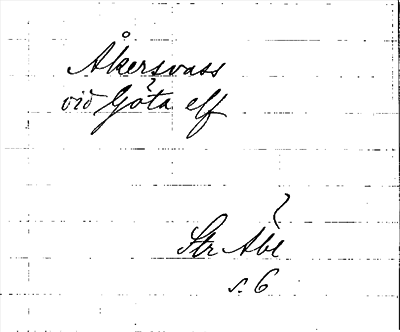 Åkersvass
vid Göta elf
Str Åbé
s. 6